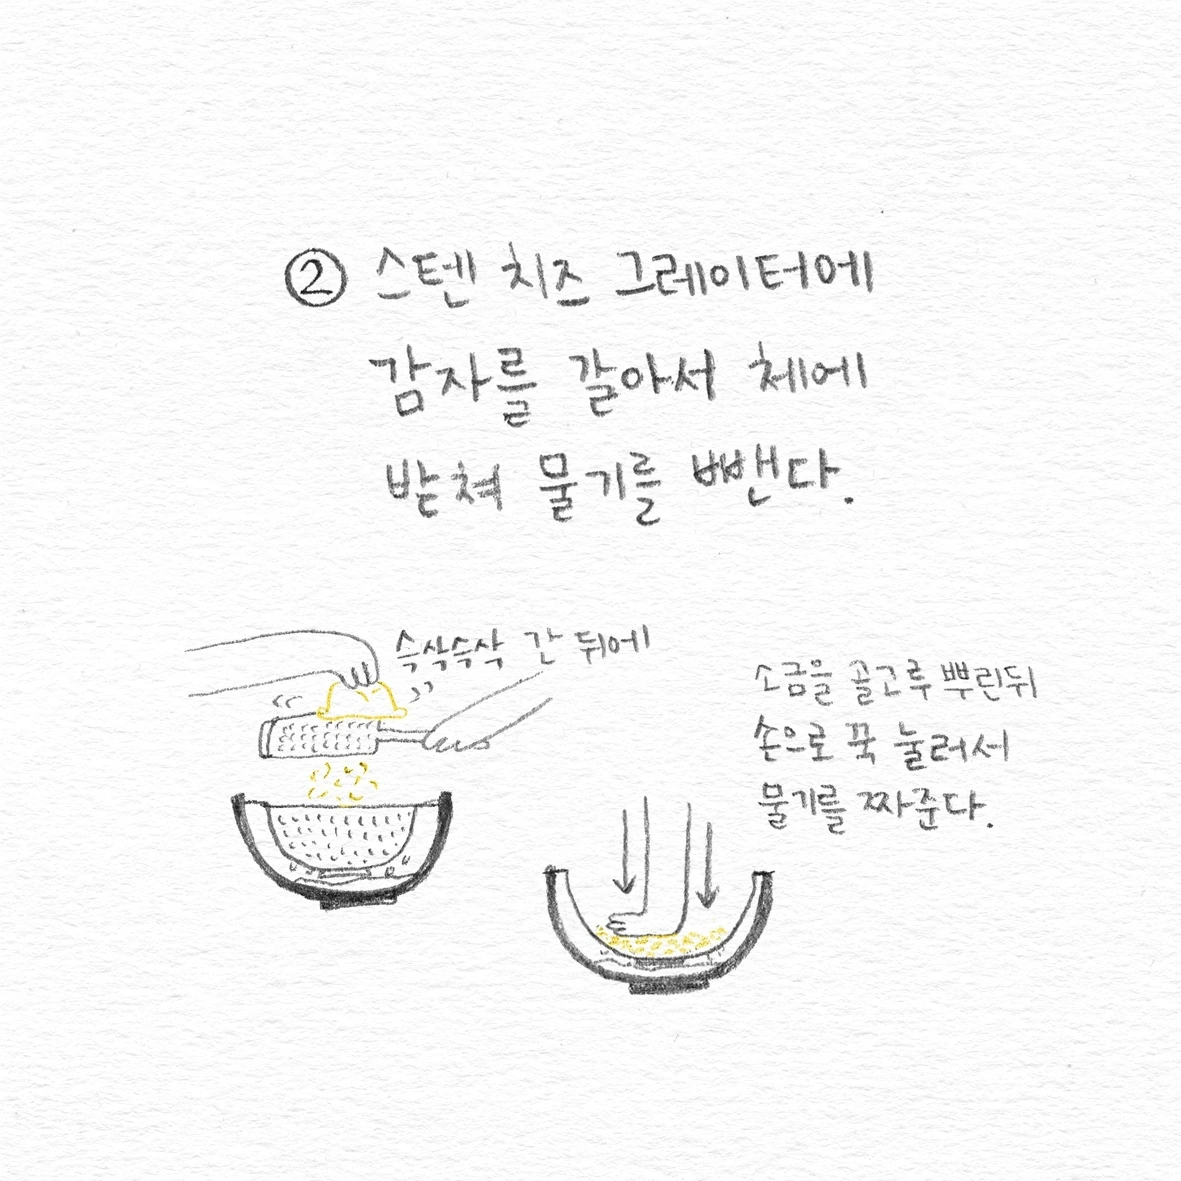 ② 스텐 치즈 그레이터에
감자를 갈아서 체에
받쳐 물기를 뺀다.
슥삭슥삭 간 뒤에
소금을 골고루 뿌린뒤
손으로 꾹 눌러서
물기를 짜준다.